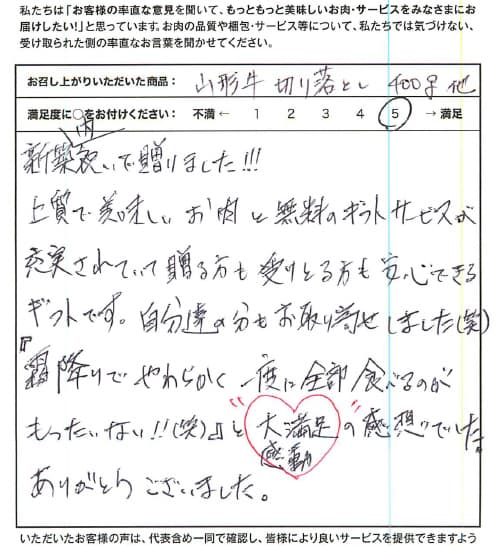 私たちは「お客様の率直な意見を聞いて、もっともっと美味しいお肉・サービスをみなさまにお
届けしたい！」と思っています。お肉の品質や梱包・サービス等について、私たちでは気づけない、
受け取られた側の率直なお言葉を聞かせてください。
お召し上がりいただいた商品： 山形牛 切り落とし 400g 他
満足度に○をお付けください： 不満 ← 1 2 3 4 5 → 満足
内
新築祝いで贈りました!!!
上質で美味しいお肉と無料のギフトサービスが
充実されていて贈る方も受けとる方も安心できる
ギフトです。自分達の分もお取り寄せしました(笑)
『霜降りでやわらかく 一度に全部食べるのが
もったいない!!(笑)』と "大満足の感想"でした。
感動
ありがとうございました。
いただいたお客様の声は、代表含め一同で確認し、皆様により良いサービスを提供できますよう